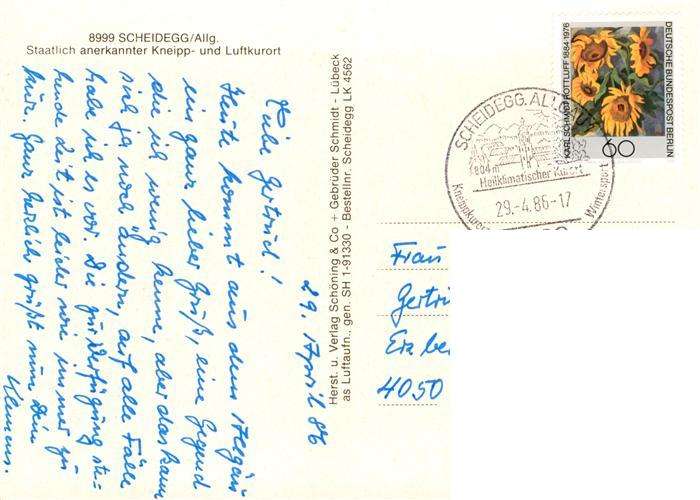 8999 SCHEIDEGG/Allg.
Staatlich anerkannter Kneipp- und Luftkurort
29. April 86
Liebe Gertrud!
Heute kommt aus dem Allgäu
ein ganz lieber Gruß, eine Gegend
die ich wenig kenne, aber das kann
sich ja noch ändern, auf alle Fälle
habe ich es vor. Die zur Verfügung ste=
hende Zeit ist leider wie immer zu
kurz. Ganz herzlich grüßt nun Dein
Klemens.
Herst. u. Verlag Schöning & Co + Gebrüder Schmidt - Lübeck
as Luftaufn., gen. SH 1-91330 - Bestellnr. Scheidegg LK 4562
SCHEIDEGG, ALLGÄU
804m
Heilklimatischer Kurort
29.-4.86-17
Kneippkurort
Wintersport
KARL SCHMIDT-ROTTLUFF 1884-1976
DEUTSCHE BUNDESPOST BERLIN
60
Frau
Gertru
Erz be
4050